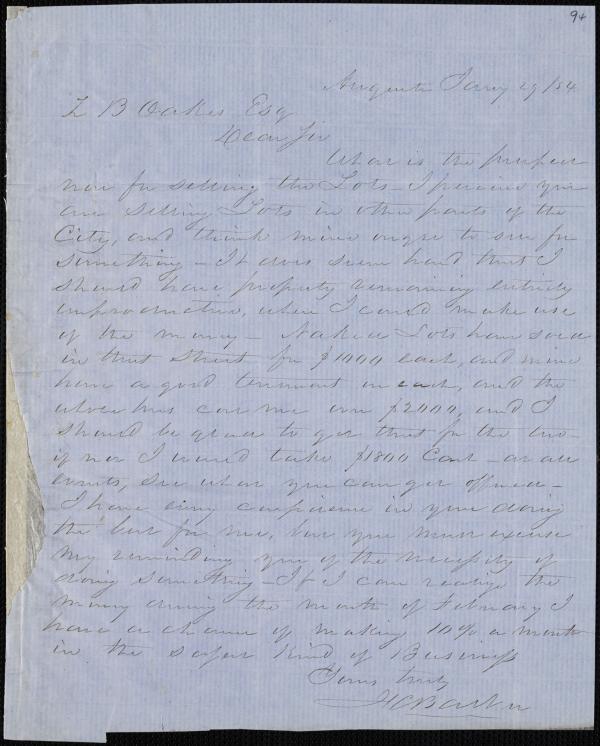 94
Augusta Jany 29/54
Z B Oakes Esq
Dear Sir
What is the prospect
now for selling the Lots - I perceive you
are selling Lots in other parts of the
City, and think mine ought to sell for
something - It does seem hard that I
should have property remaining entirely
unproductive, when I could make use
of the money - Naked Lots have sold
in that Street for $1000 each, and mine
have a good tenement on each, and the
whole has cost me over $2000, and I
should be glad to get that for the two -
if not I would take $1800 Cash - at all
events, see what you can get offered -
I have every confidence in your doing
the best for me, but you must excuse
my reminding you of the necessity of
doing something - If I can realize the
money during the month of February I
have a chance of making 10% a month
in the safest kind of Business
Yours truly